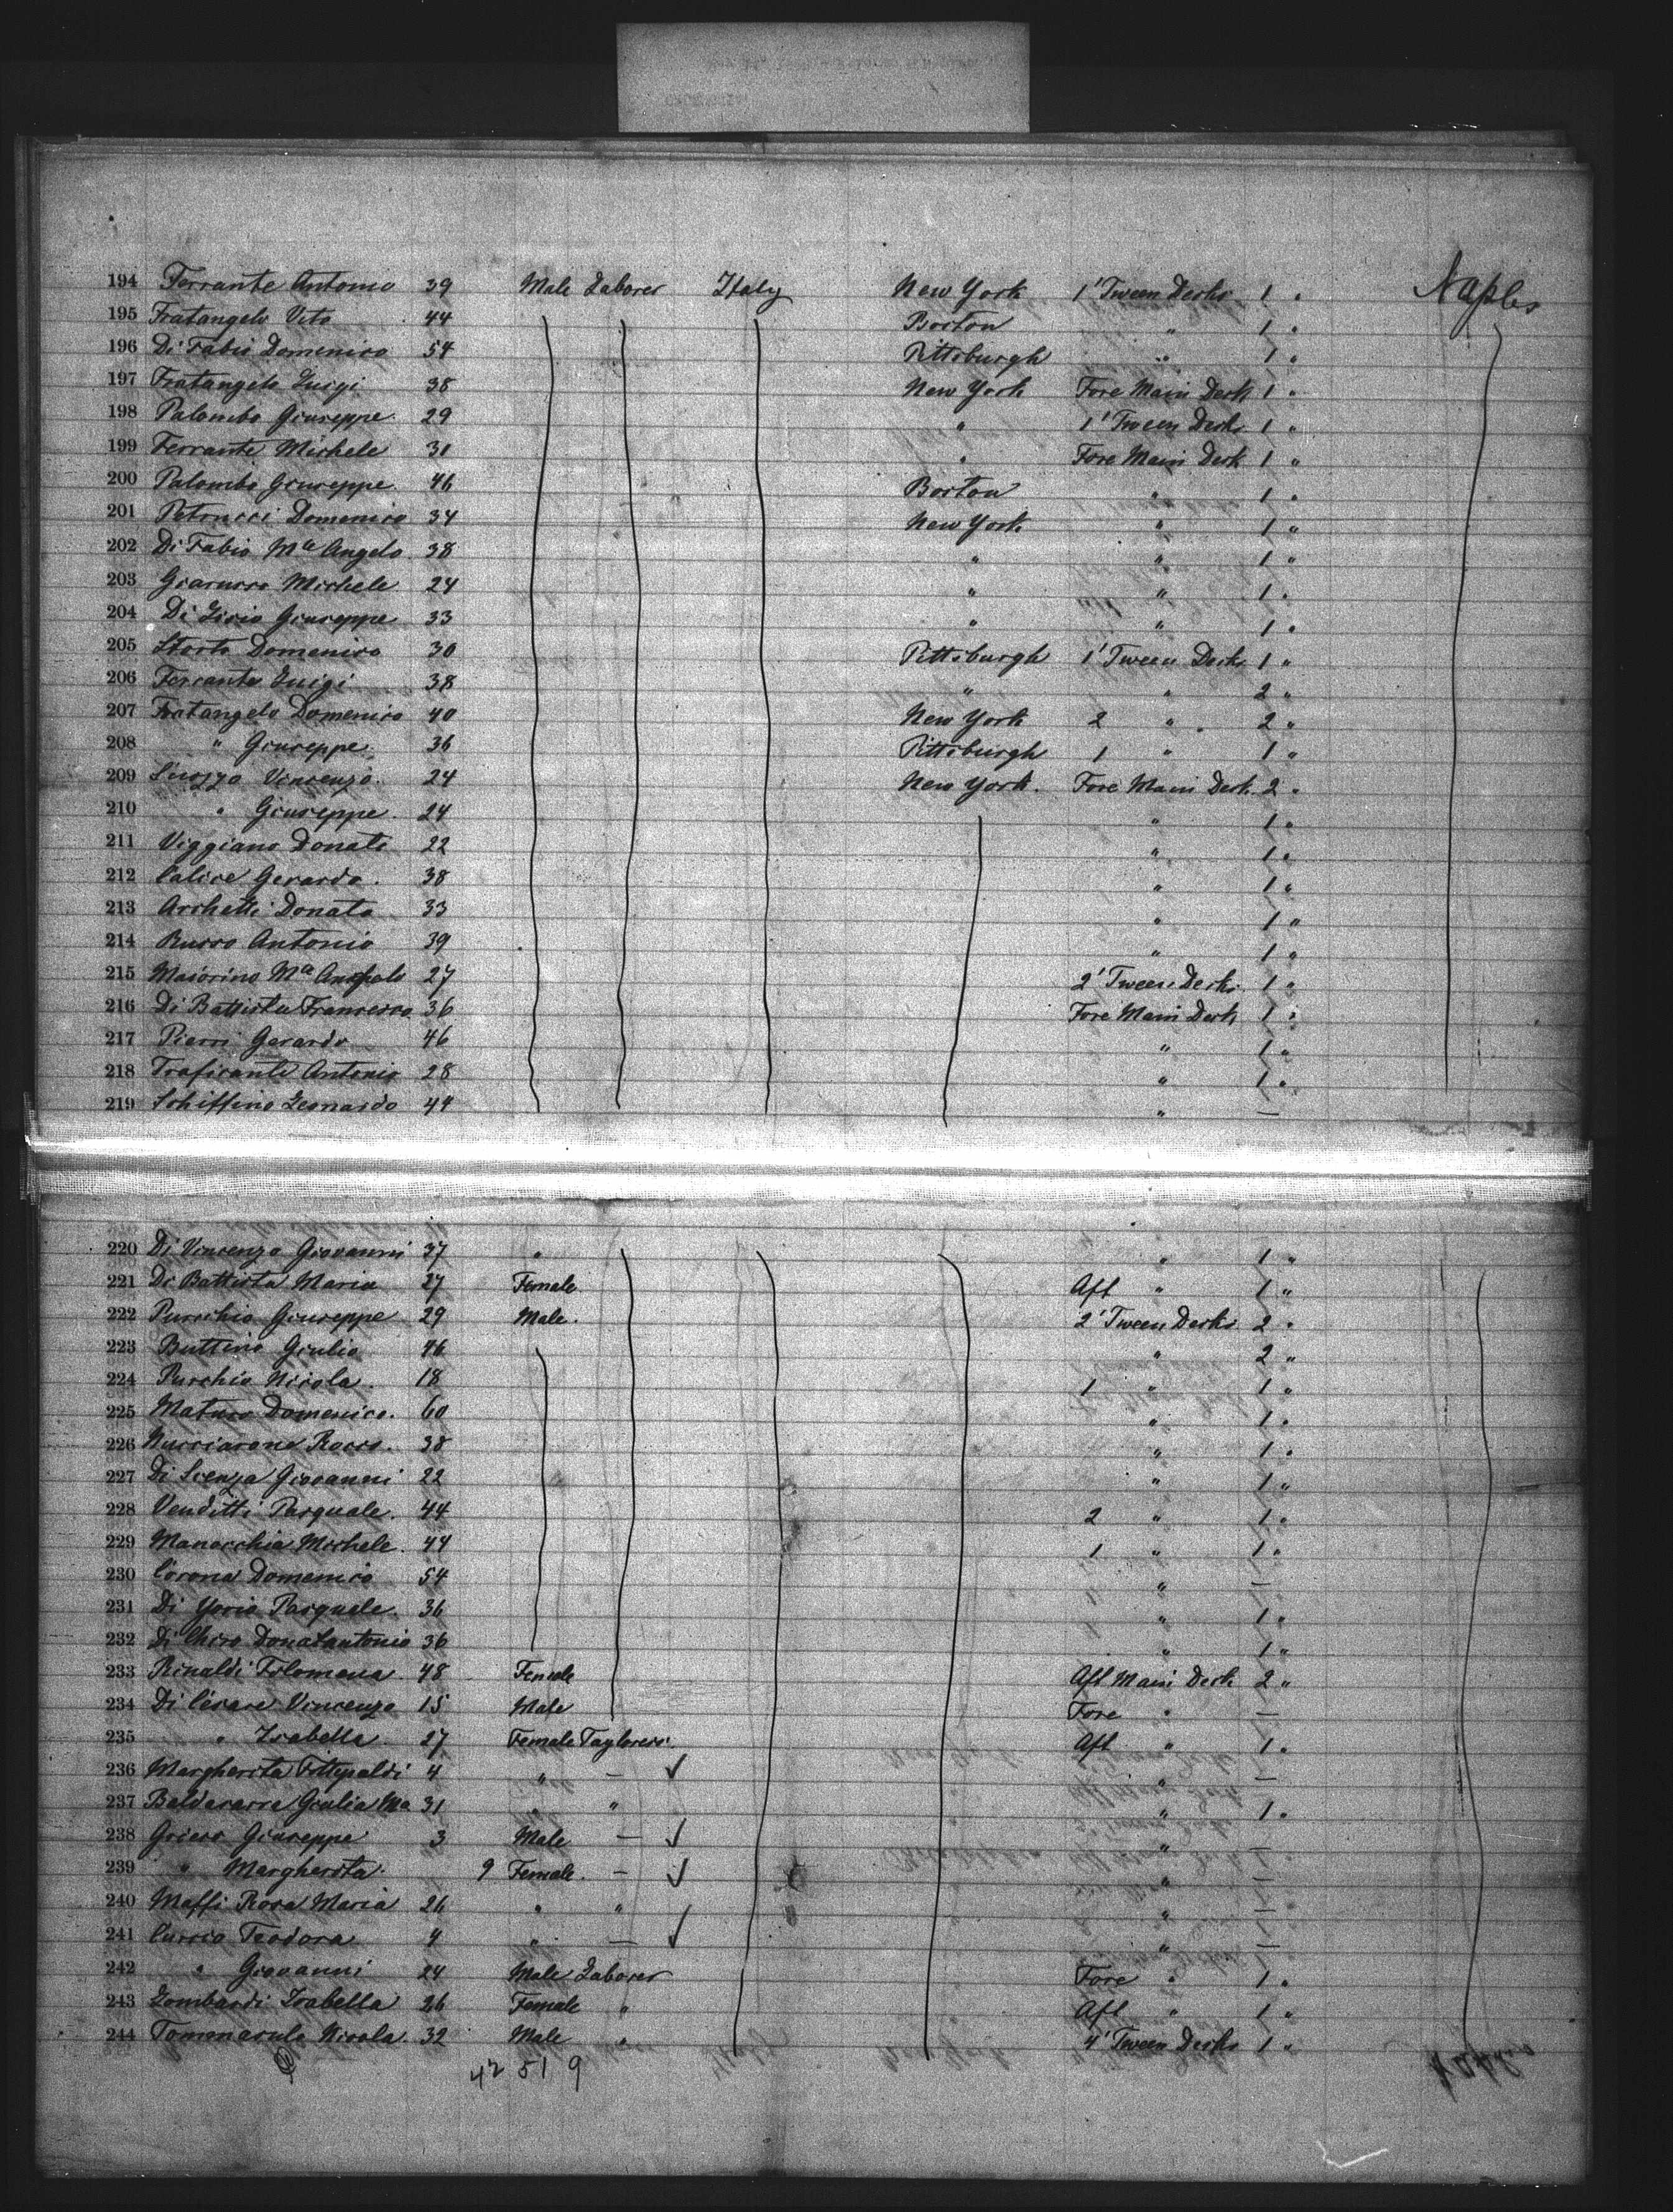 194 Ferrante Antonio 39 Male Laborer Italy New York 1' Tween Decks 1 " Naples
195 Fratangelo Vito 44 Boston " 1 "
196 Di Fabio Domenico 54 Pittsburgh " 1 "
197 Fratangelo Luigi 38 New York Fore Main Deck 1 "
198 Palombo Giuseppe 29 " 1' Tween Deck 1 "
199 Ferrante Michele 31 " Fore Main Deck 1 "
200 Palombo Giuseppe 46 Boston " 1 "
201 Petrucci Domenico 34 New York " 1 "
202 Di Fabio Ma Angelo 38 " " 1 "
203 Giarusso Michele 24 " " 1 "
204 Di Lisio Giuseppe 33 " " 1 "
205 Storto Domenico 30 Pittsburgh 1' Tween Deck 1 "
206 Ferrante Luigi 38 " " 2 "
207 Fratangelo Domenico 40 New York 2 " 2 "
208 " Giuseppe 36 Pittsburgh 1 " 1 "
209 Vincenzo 24 New York. Fore Main Deck 2 "
210 " Giuseppe. 24 " 1 "
211 Viggiano Donato 22 " 1 "
212 Calice Gerardo. 38 " 1 "
213 Archetti Donato 33 " 1 "
214 Russo Antonio 39 " 1 "
215 Maiorino Ma Angelo 27 2' Tween Decks 1 "
216 Di Battista Francesco 36 Fore Main Deck 1 "
217 Pierri Gerardo 46 " 1 "
218 Traficante Antonio 28 " 1 "
219 Schiffino Leonardo 44 " —
220 Di Vincenzo Giovanni 37 " " 1 "
221 Di Battista Maria 27 Female Aft " 1 "
222 Purchio Giuseppe 29 Male. 2' Tween Decks 2 "
223 Buttino Giulio 46 " 2 "
224 Purchio Nicola. 18 1 " 1 "
225 Maturo Domenico. 60 " 1 "
226 Nucciarone Rocco. 38 " 1 "
227 Di Scenza Giovanni 22 " 1 "
228 Venditti Pasquale. 44 2 " 1 "
229 Manocchia Michele. 44 1 " 1 "
230 Corona Domenico 54 " —
231 Di Yorio Pasquale. 36 " 1 "
232 Di Chiro Donatantonio 36 " 1 "
233 Rinaldi Filomena 48 Female Aft Main Deck 2 "
234 Di Cesare Vincenzo 15 Male Fore " —
235 " Isabella. 27 Female Tayloress. Aft " 1 "
236 Margherita Fittipaldi 4 " — ✓ " —
237 Baldasarra Giulia Ma 31 " " " 1 "
238 Grieco Giuseppe 3 Male — ✓ " —
239 " Margherita. 9 Female. — ✓ " —
240 Maffi Rosa Maria 26 " " " —
241 Curcio Teodora 4 " — ✓ " —
242 " Giovanni 24 Male Laborer Fore " 1 "
243 Lombardi Isabella 26 Female " Aft " 1 "
244 Tomenasulo Nicola. 32 Male " 4' Tween Decks 1 "
42 51 9